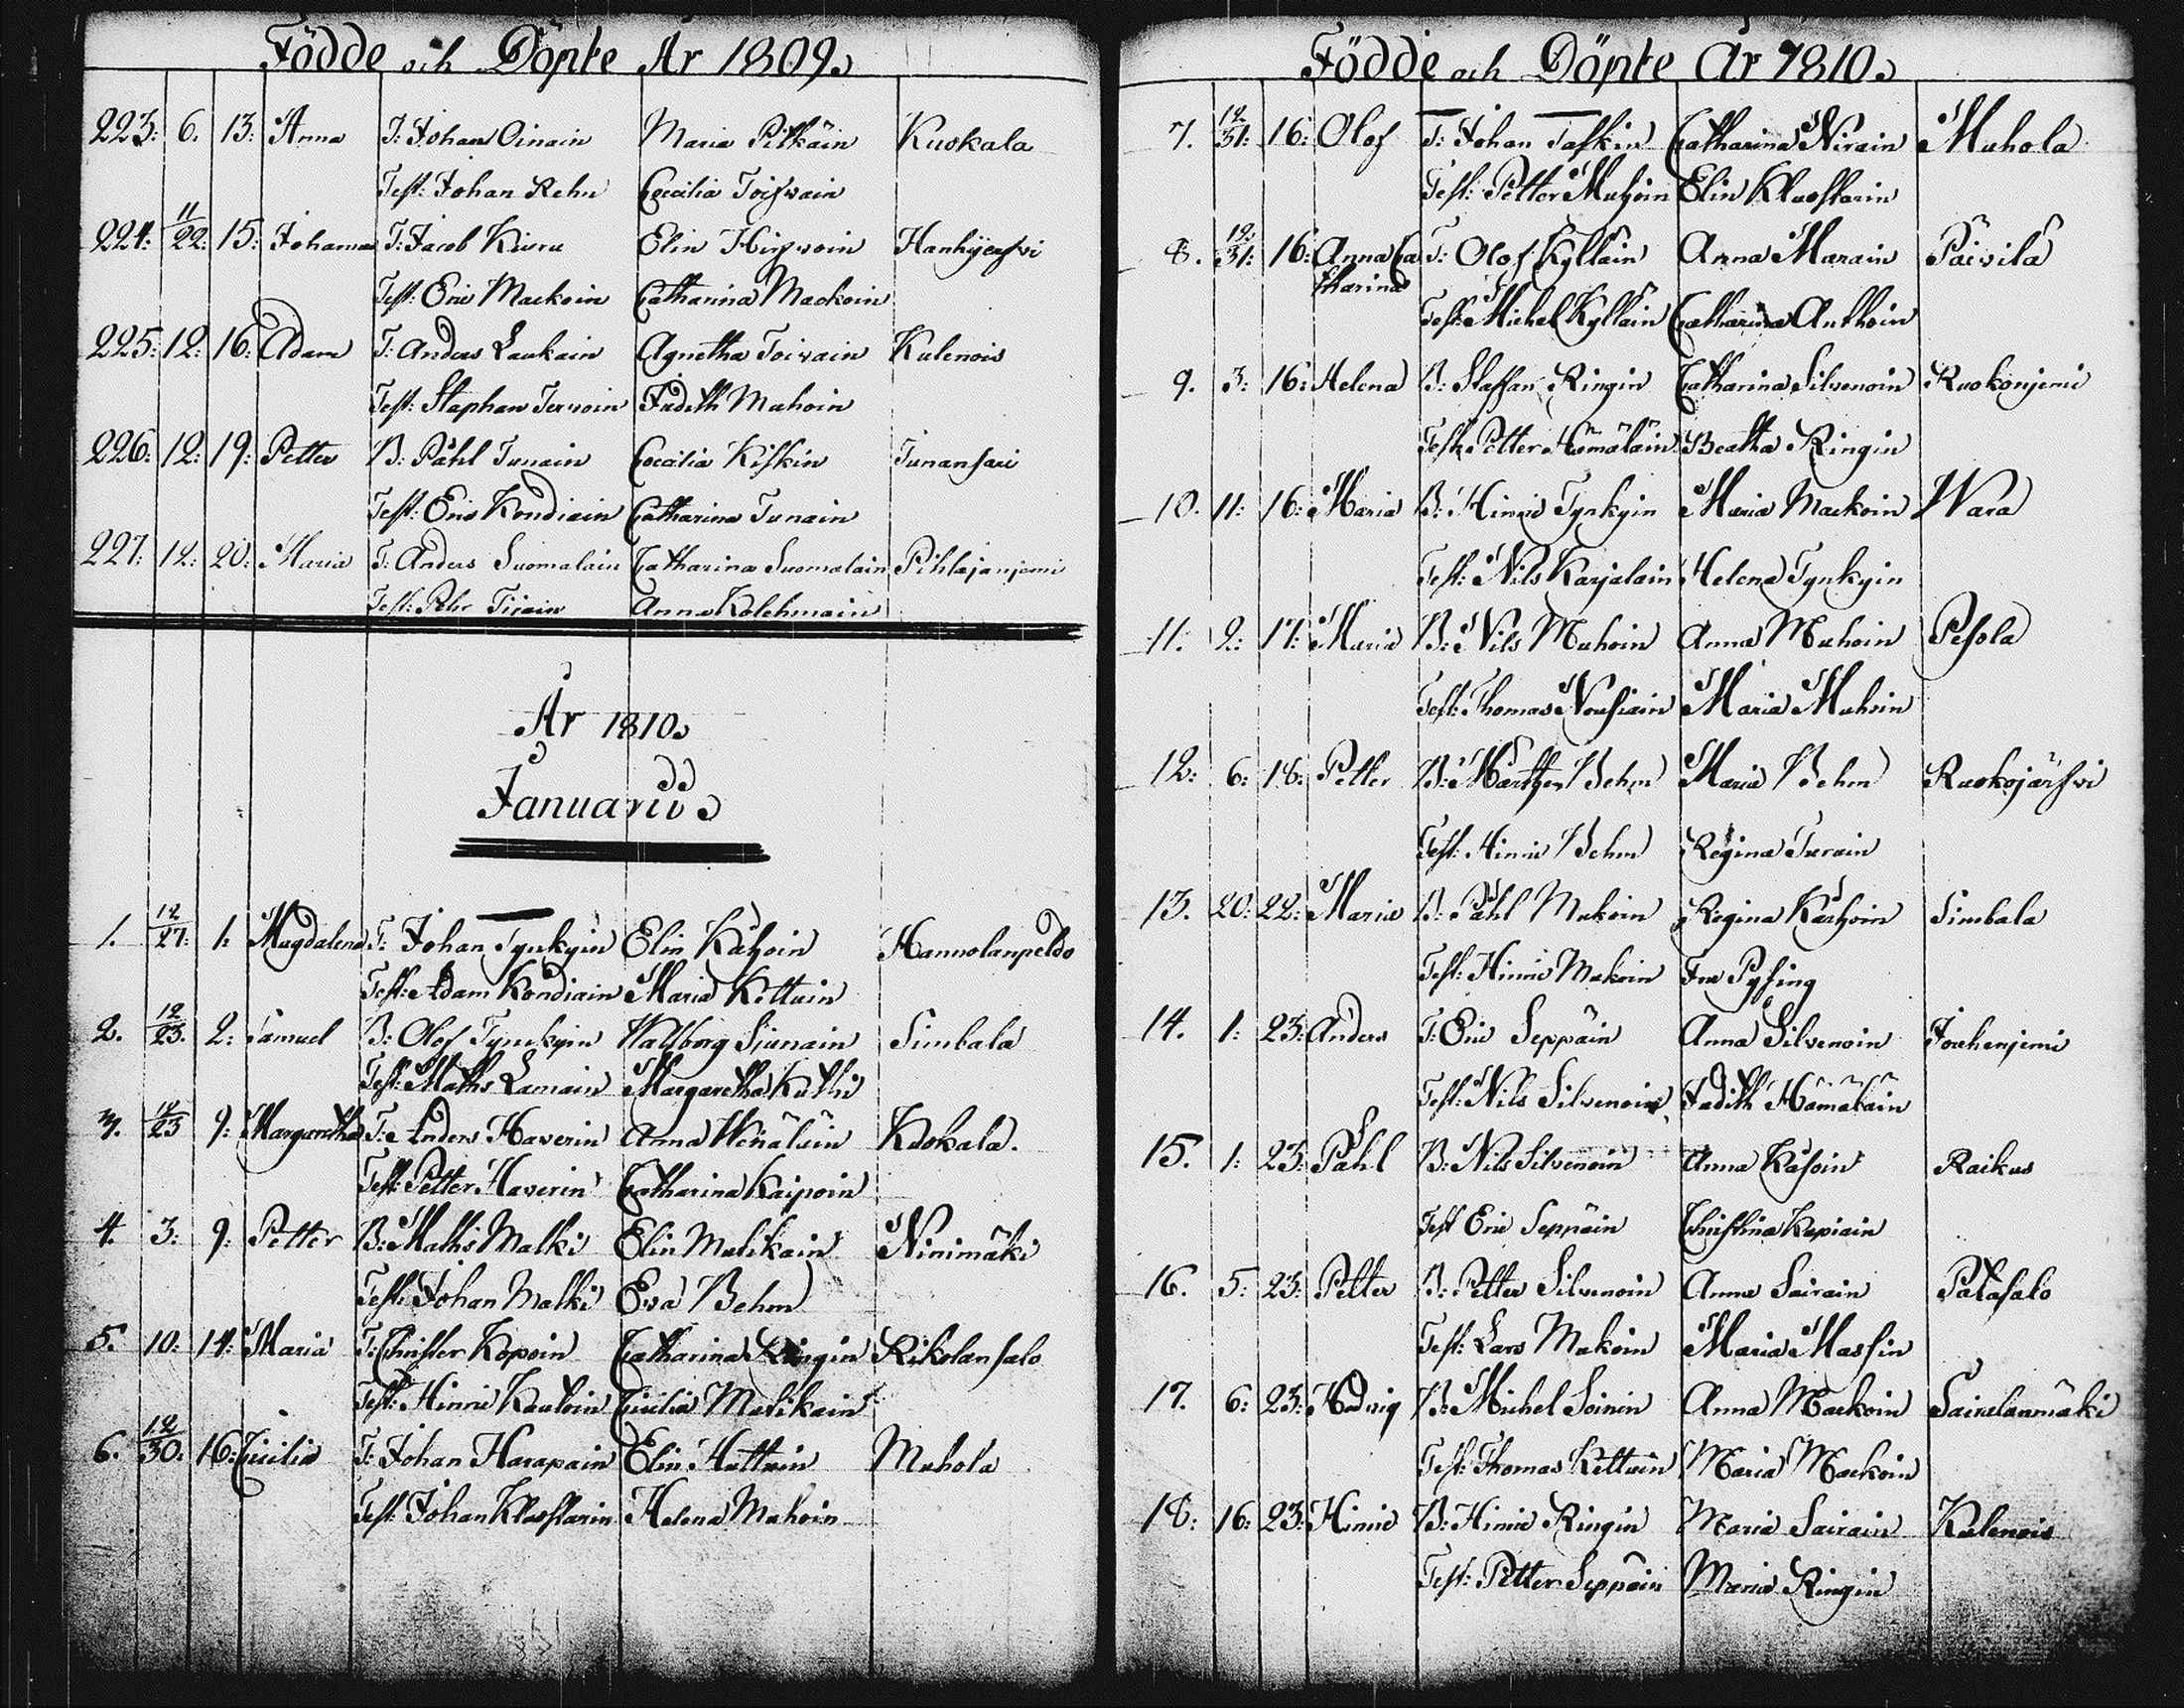 Födde och Döpte År 1809.
223: 6. 13: Anna T: Johan Oinain Maria Pitkäin Kuokala
Test: Johan Rehn Cecilia Toiswain
224: 11/22: 15: Johannes T: Jacob Kiuru Elin Hirswoin Hanhijerfwi
Test: Eric Mackoin Catharina Mackoin
225: 12: 16: Adam T: Anders Laukain Agnetha Toivain Kulenois
Test: Staphan Terwoin Judith Muhoin
226: 12: 19: Petter B: Påhl Tunain Cecilia Kiskin Tunansari
Test: Eric Kondiain Catharina Tunain
227: 12: 20: Maria T: Anders Suomalain Catharina Suomalain Pihlajanjemi
Test: Pehr Tirain Anna Kolehmain
År 1810.
Januarii
1. 12/27: 1: Magdalena T: Johan Tynkyin Elin Käyhoin Hannolanpeldo
Test: Adam Kondiain Maria Kettuin
2. 12/23. 2: Samuel B: Olof Tynkyin Walborg Siunain Simbala
Test: Maths Lamain Margaretha Kuthi
3. 12/23 9: Margaretha T: Anders Haverin Anna Wenäläin Kuokala.
Test: Petter Haverin Catharina Kaipoin
4. 3: 9: Petter B: Maths Malki Elin Mulikain Ninimäki
Test: Johan Malki Eva Behm
5. 10: 14: Maria T: Christer Kopoin Catharina Ringin Rikolansalo
Test: Hinric Kauloin Cicilia Mulikain
6. 12/30: 16: Cicilia T: Johan Harapain Elin Huttuin Muhola
Test: Johan Kluostarin Helena Muhoin
Födde och Döpte År 1810.
7. 12/31: 16: Olof T: Johan Taskin Catharina Nirain Muhola
Test: Petter Muhoin Elin Kluostarin
8. 12/31: 16: Anna Ca T: Olof Kylläin Anna Marain Päivilä
tharina
Test: Michel Kylläin Catharina Anthoin
9. 3: 16: Helena B: Staffan Ringin Catharina Silvenoin Ruokonjemi
Test: Petter Hämäläin Beatha Ringin
10. 11: 16: Maria B: Hinric Tynkyin Maria Mackoin Wara
Test: Nils Karjalain Helena Tynkyin
11. 2: 17: Maria B: Nils Muhoin Anna Muhoin Pesola
Test: Thomas Nousiain Maria Muhoin
12: 6: 18: Petter B: Marthen Behm Maria Behm Ruokojärfwi
Test: Hinric Behm Regina Turain
13. 20: 22: Maria B: Påhl Mukoin Regina Karhoin Simbala
Test: Hinric Mukoin Fru Pysing
14. 1: 23: Anders T: Eric Seppäin Anna Silvenoin Jouhenjemi
Test: Nils Silvenoin Judith Hämäläin
15. 1: 23: Påhl B: Nils Silvenoin Anna Käsoin Raikus
Test Eric Seppäin Christina Kupiain
16. 5: 23: Petter B: Petter Silvenoin Anna Sairain Patasalo
Test: Lars Mukoin Maria Massin
17. 6: 23: Hedvig B: Michel Soinin Anna Mackoin Sairalanmäki
Test: Thomas Kettuin Maria Mackoin
18: 16: 23: Hinric B: Hinric Ringin Maria Sairain Kulenois
Test: Petter Seppäin Maria Ringin